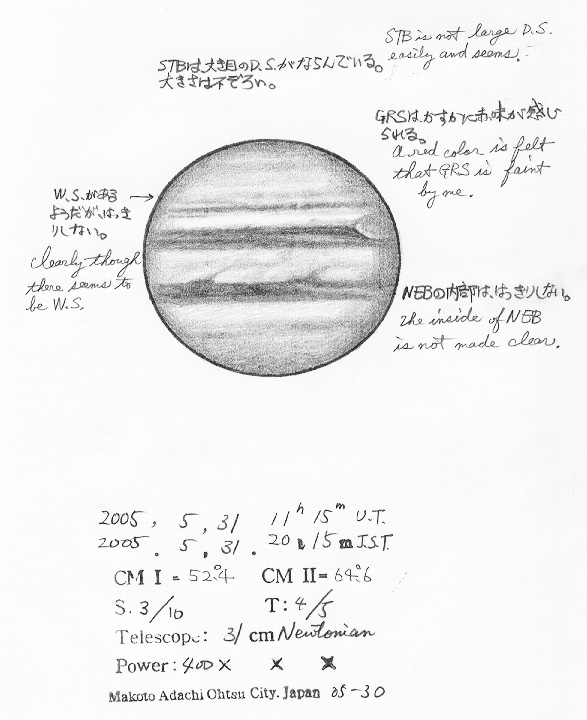 STBは大き目のD.S.がならんでいる。
大きさは不ぞろい。
STB is not large D.S.
easily and seems.
GRSは、かすかに赤味が感じ
られる。
a red color is felt
that GRS is faint
by me.
W.S.がある
ようだが、はっき
りしない。
Clearly though
there seems to
be W.S.
NEBの内部は、はっきりしない。
the inside of NEB
is not made clear.
2005, 5, 31 11h 15m U.T.
2005. 5, 31. 20 15m J.S.T.
CM I = 52.°4 CM II= 64.°6
S. 3/10 T: 4/5
Telescope: 31 cm Newtonian
Power: 400 × × ×
Makoto Adachi Ohtsu City. Japan 05-30